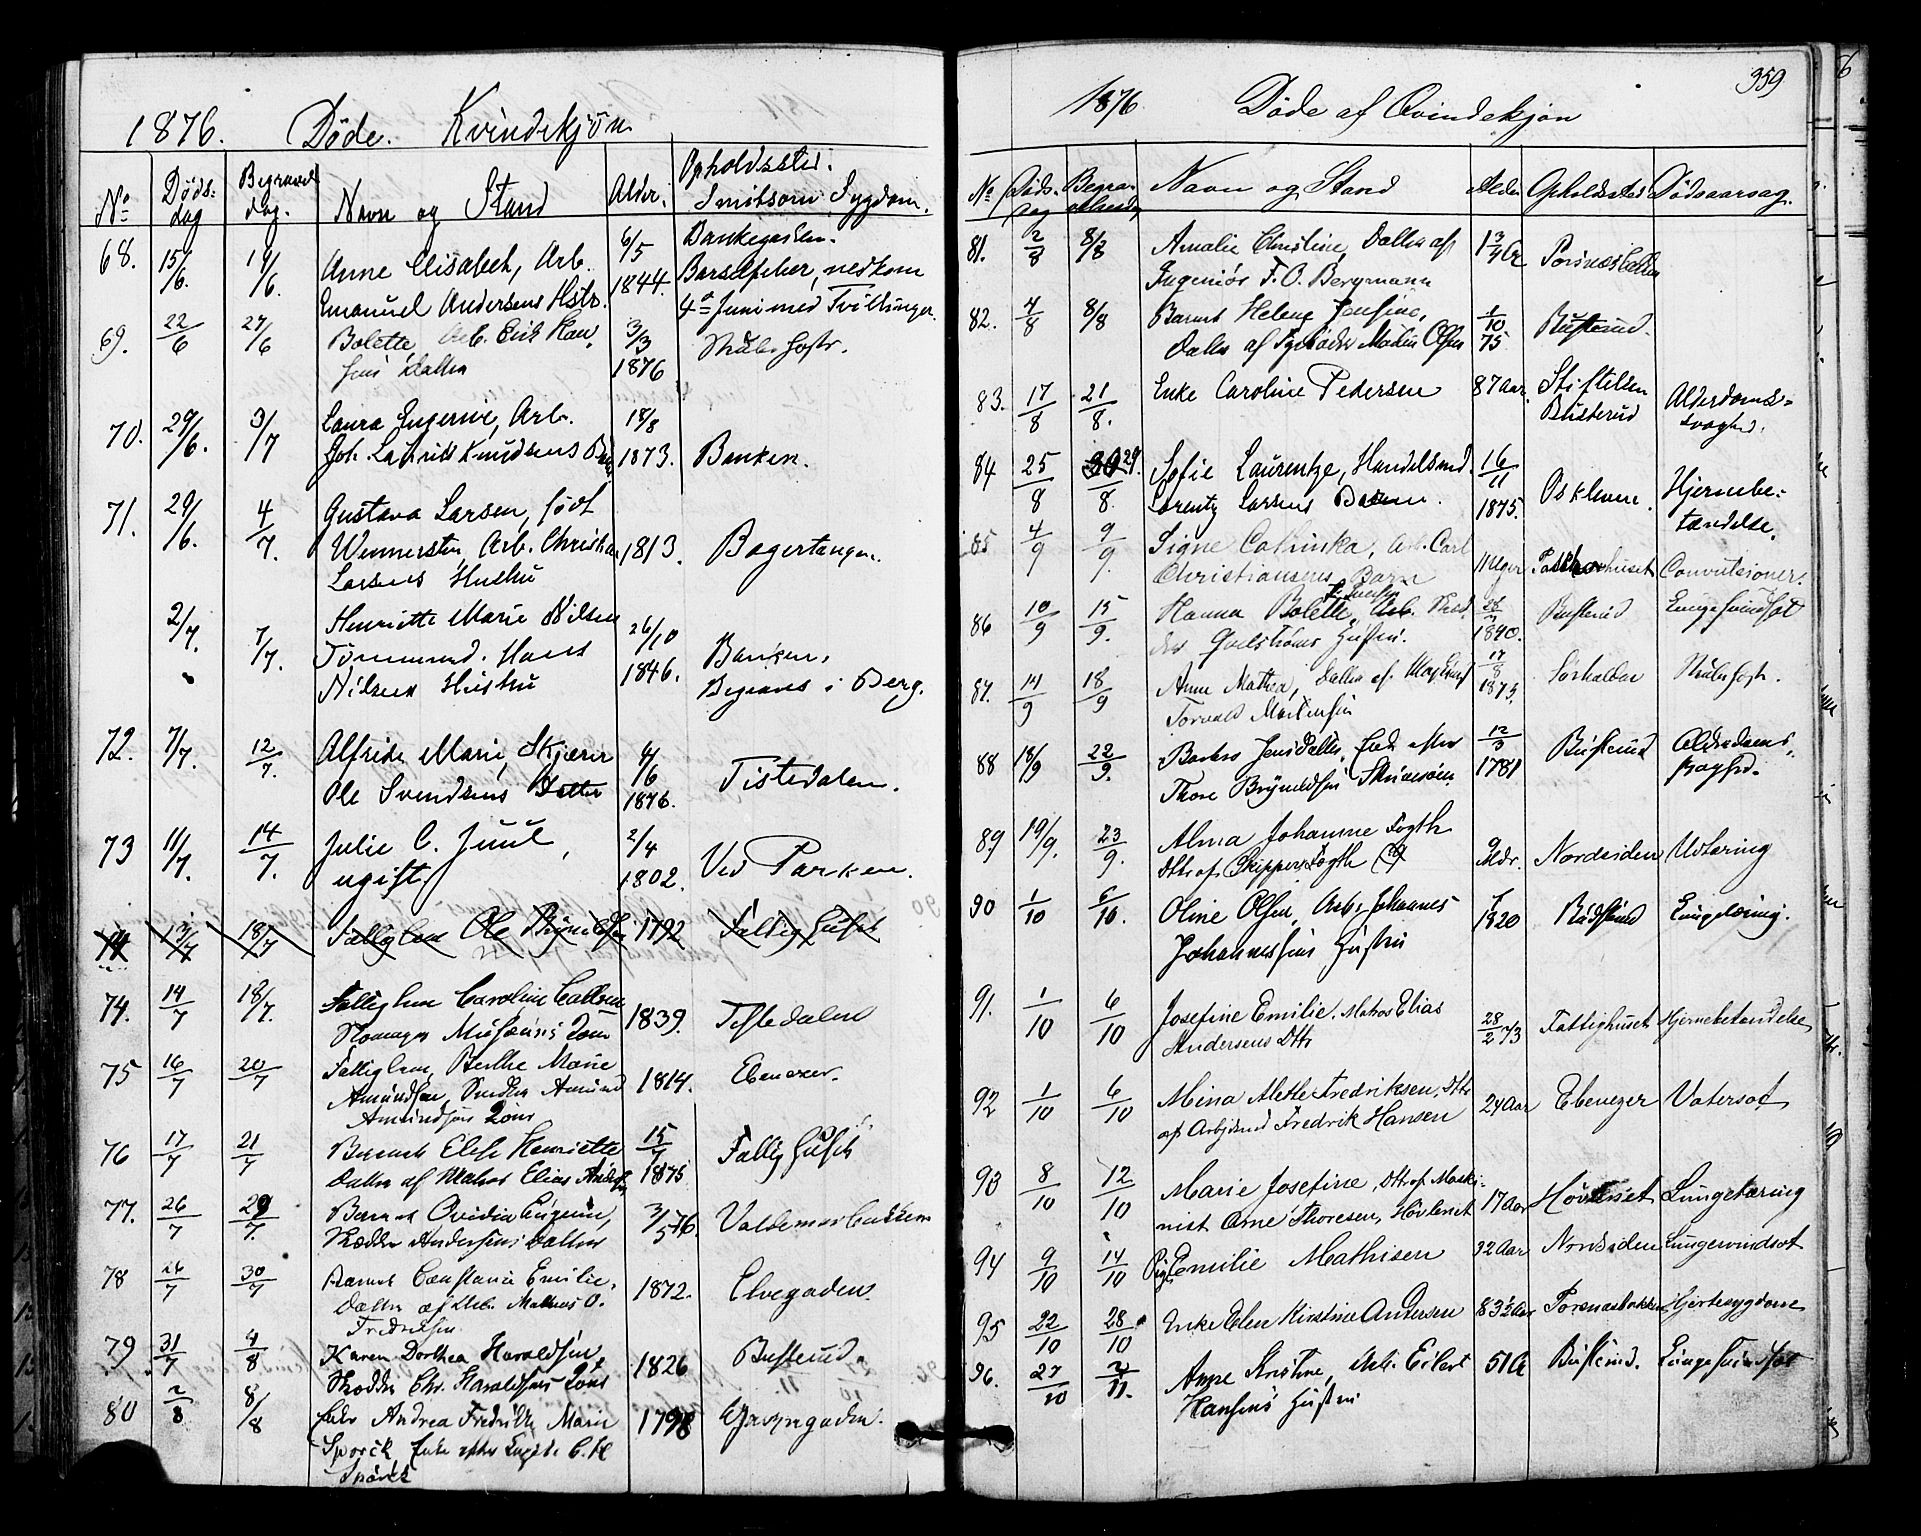 1876. Døde. Kvindekjøn
No Døds: dag Begravel dag. Navn og Stand Alder. Opholdssted. Smitsom Sygdom.
68. 15/6. 19/6. Anne Elisabeth, Arb. 6/5 Bankegaden.
Emanuel Andersens Hstr. 1844. Barselfeber, nedkom
4de Juni med Tvillinger.
69. 22/6 27/6 Bolette, Arb. Erik Han- 3/3 Strubehoste.
sens Datter 1876
70. 29/6. 3/7 Laura Eugenie, Arb. 18/8
Joh. Lauritz Knudsens Barn 1873. Banken.
71. 29/6. 4/7. Gustava Larsen, født
Wennersten, Arb. Christian 1813. Bagertangen.
Larsens Hustru
2/7. 7/7. Henriette Marie Nilsen 26/10
Tømmermd. Hans 1846. Banken,
Nilsens Hustru Begraves i Berg.
72. 7/7. 12/7. Alfride Marie, Skjærer 4/6
Ole Svendsens Datter 1876. Tistedalen.
73 11/7. 14/7. Julie C. Juul, 2/4
ugift. 1802. Ved Parken.
74 13/7 18/7 Fattiglem Ole 1792 Fattighuset
74. 14/7 18/7. Fattiglem Caroline
1839. Tistedalen
75 16/7 20/7 Fattiglem, Berthe Marie
Amundsen, Amund 1814. Ebenezer.
Amundsens
76 17/7 21/7 Barnet Elise Henriette 15/7 Fattighuset
Datter af Matros Elias Anders 1875
77. 26/7 29/7. Barnet Ovidia Eugenie, 3/5 76. Valdemarbakken
Skrædder Andersens Datter
78 26/7 30/7 Barnet Constance Emilie,
Datter af Arb. Mathias O. 1872. Elvegaden
Fredriksen
79 31/7 4/8 Karen Dorthea Haraldsen, 1826 Busterud.
Skrædder Chr. Haraldsens
80 2/8 8/8 Andrea Fredrikke Marie 1798
Sporck Enke efter C. H.
Sporck
359
1876 Døde af Qvindekjøn
No Døds- dag Begravelsesdag Navn og Stand Alder Opholdssted Dødsaarsag.
81. 2/8 8/8 Amalie Christine, Datter af 1 3/4 Ar
Ingeniør F. O. Bergmann
82. 4/8 8/8 Barnet Helene Josefine, 1/10 75 Busterud.
Datter af Olsen
83. 17/8 21/8. Enke Caroline Pedersen 87 Aar. Stiftelsen Busterud Alderdoms- svaghed.
84 25/8 29/8. Sofie Laurentze, Handelsmd. 16/11
Lorentz Larsens Barn. 1875. Oskleven. Hjernebe- tændelse.
85 4/9 9/9. Signe Cathinka, Arb. Carl
Christiansens Barn 11 Uger Convulsioner.
86 10/9 15/9. Hanna Bolette, Arb.
Hustru. 1840. Busterud Lungesvindsot
87. 14/9 18/9 Anne Mathea, Datter af 17/8 1873 Sørhalden Strubehoste.
Torvald Martinsen
88 18/9 22/9. Barbro Jensdatter, Enke efter 12/3 1781 Busterud Alderdoms- svaghed.
Thore Brynildsen
89 19/9. 23/9. Alma Johanne Fogth 9 Mdr. Nordsiden Udtæring
Dtr af Skipper Fogth
90 1/10 6/10. Oline Olsen, Arb. Johannes 1820 Busterud Lungetæring.
Johannessens Hustru
91. 1/10 6/10 Josefine Emilie, Matros Elias 28/2 73 Fattighuset Hjernebetændelse
Andersens Dttr
92 1/10 6/10 Mina Alette Fredriksen, Dttr 24 Aar Ebenezer Vatersot
af Arbjdsmd Fredrik Hansen
93 8/10 12/10 Marie Josefine, Dttr af Maski-
nist Arne Thoresen, Høvleriet 17 Aar Høvleriet Lungetæring
94 9/10 14/10 Pige Emilie Mathisen 32 Aar Nordsiden Lungesvindsot
95 22/10 28/10 Enke Elen Kirstine Andersen 83½ Aar Torsnæsbakken Hjertesygdom
96. 27/10 2/11. Anne Kristine, Arb. Eilert 51 A Busterud. Lungesvindsot
Hansens Hustru